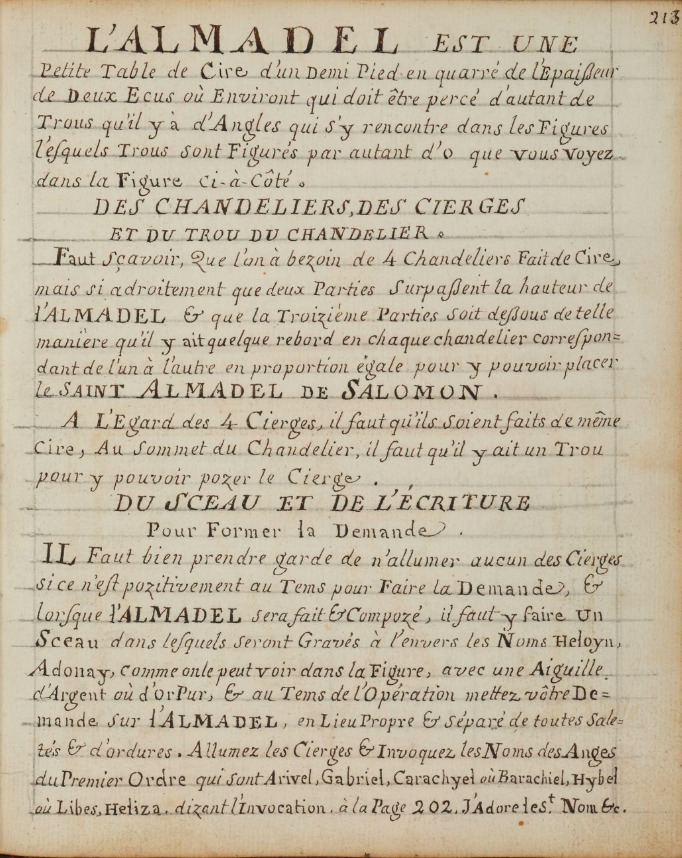 213
L'ALMADEL EST UNE
Petite Table de Cire d'un Demi Pied en quarré de l'Epaißeur
de Deux Ecus où Environt qui doit être percé d'autant de
Trous qu'il y à d'Angles qui s'y rencontre dans les Figures
l'esquels Trous sont Figurés par autant d'o que vous voyez
dans la Figure ci-à-Côté.
DES CHANDELIERS, DES CIERGES
ET DU TROU DU CHANDELIER.
Faut Sçavoir, Que l'on à bezoin de 4 Chandeliers Fait de Cire,
mais si adroitement que deux Parties Surpaßent la hauteur de
l'ALMADEL & que la Troizième Parties soit deßous de telle
maniere qu'il y ait quelque rebord en chaque chandelier correspon=
dant de l'un à l'autre en proportion égale pour y pouvoir placer
le SAINT ALMADEL DE SALOMON.
A L'Egard des 4 Cierges, il faut qu'ils soient faits de même
Cire, Au Sommet du Chandelier, il faut qu'il y ait un Trou
pour y pouvoir pozer le Cierge.
DU SCEAU ET DE L'ÉCRITURE
Pour Former la Demande.
IL Faut bien prendre garde de n'allumer aucun des Cierges
si ce n'est pozitivement au Tems pour Faire la Demande, &
lorsque l'ALMADEL sera fait & Compozé, il faut y faire un
Sceau dans lesquels seront Gravés à l'envers les Noms Heloyn,
Adonay, comme on le peut voir dans la Figure, avec une Aiguille
d'Argent où d'or Pur, & au Tems de l'Opération mettez vôtre De=
mande sur l'ALMADEL, en Lieu Propre & séparé de toutes Sale=
tés & d'ordures. Allumez les Cierges & Invoquez les Noms des Anges
du Premier Ordre qui sont Arivel, Gabriel, Carachyel où Barachiel, Hybel
où Libes, Heliza. dizant l'Invocation. à la Page 202. J'Adore le St. Nom &c.